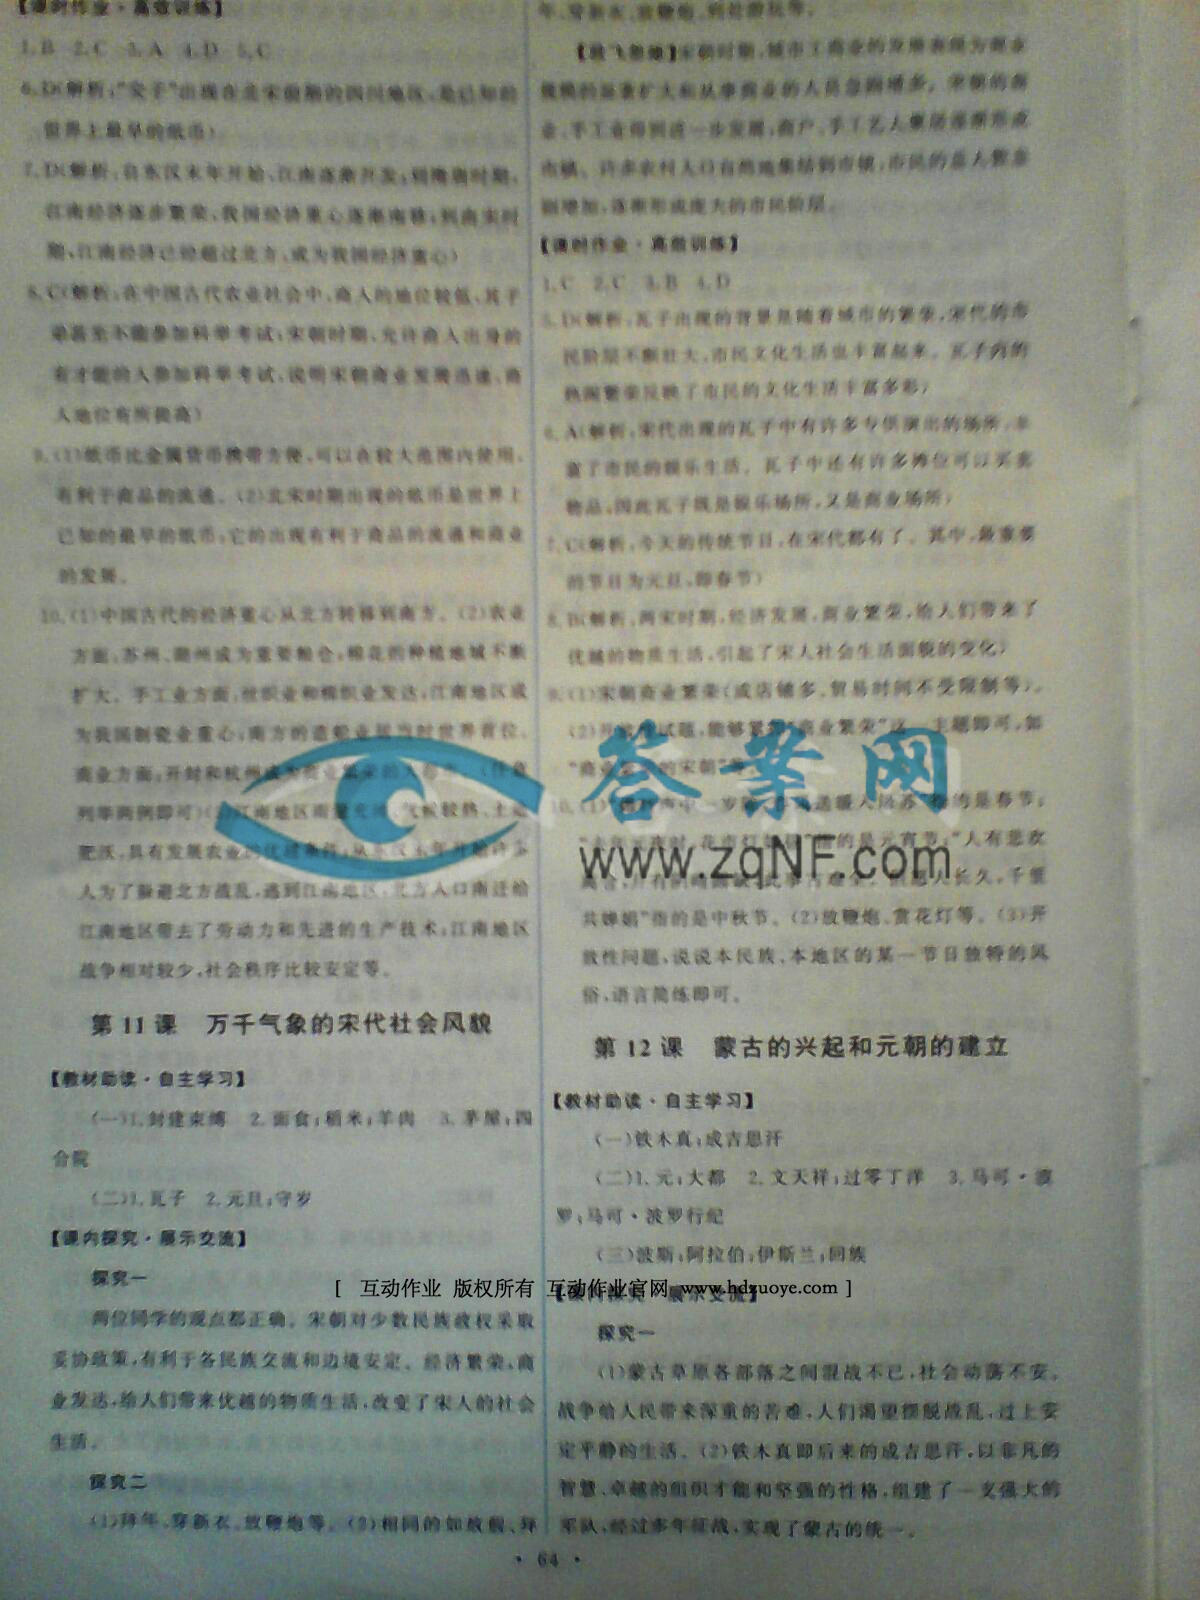 【课时作业·高效训练】
1.B 2.C 3.A 4.D 5.C
6.D(解析:"交子"出现在北宋前期的四川地区,是已知的
世界上最早的纸币)
7.D(解析:自东汉末年开始,江南逐渐开发;到隋唐时期,
江南经济逐步繁荣,我国经济重心逐渐南移;到南宋时
期,江南经济已经超过北方,成为我国经济重心)
8.C(解析:在中国古代农业社会中,商人的地位较低,其子
弟甚至不能参加科举考试;宋朝时期,允许商人出身的
有才能的人参加科举考试,说明宋朝商业发展迅速,商
人地位有所提高)
9.(1)纸币比金属货币携带方便,可以在较大范围内使用,
有利于商品的流通。(2)北宋时期出现的纸币是世界上
已知的最早的纸币;它的出现有利于商品的流通和商业
的发展。
10.(1)中国古代的经济重心从北方转移到南方。(2)农业
方面:苏州、湖州成为重要粮仓;棉花的种植地域不断
扩大。手工业方面:丝织业和棉织业发达;江南地区成
为我国制瓷业重心;南方的造船业居当时世界首位。
商业方面:开封和杭州成为商业繁荣的大都市。(任意
列举两例即可)(3)江南地区雨量充沛,气候较热,土地
肥沃,具有发展农业的优越条件;从东汉末年开始许多
人为了躲避北方战乱,逃到江南地区,北方人口南迁给
江南地区带去了劳动力和先进的生产技术;江南地区
战争相对较少,社会秩序比较安定等。
第 11 课 万千气象的宋代社会风貌
【教材助读·自主学习】
(一)1.封建束缚 2.面食;稻米;羊肉 3.茅屋;四
合院
(二)1.瓦子 2.元旦;守岁
【课内探究·展示交流】
探究一
两位同学的观点都正确。宋朝对少数民族政权采取
妥协政策,有利于各民族交流和边境安定。经济繁荣,商
业发达,给人们带来优越的物质生活,改变了宋人的社会
生活。
探究二
(1)拜年、穿新衣、放鞭炮等。(2)相同的如放假、拜
年、穿新衣、放鞭炮、到处游玩等。
【放飞思维】宋朝时期,城市工商业的发展表现为商业
规模的显著扩大和从事商业的人员急剧增多。宋朝的商
业、手工业得到进一步发展,商户、手工艺人聚居逐渐形成
市镇。许多农村人口自然地集结到市镇,市民的总人数急
剧增加,逐渐形成庞大的市民阶层。
【课时作业·高效训练】
1.C 2.C 3.B 4.D
5.D(解析:瓦子出现的背景是随着城市的繁荣,宋代的市
民阶层不断壮大,市民文化生活也丰富起来。瓦子内的
热闹繁荣反映了市民的文化生活丰富多彩)
6.A(解析:宋代出现的瓦子中有许多专供演出的场所,丰
富了市民的娱乐生活。瓦子中还有许多摊位可以买卖
物品,因此瓦子既是娱乐场所,又是商业场所)
7.C(解析:今天的传统节日,在宋代都有了。其中,最重要
的节日为元旦,即春节)
8.B(解析:两宋时期,经济发展,商业繁荣,给人们带来了
优越的物质生活,引起了宋人社会生活面貌的变化)
9.(1)宋朝商业繁荣(或店铺多、贸易时间不受限制等)。
(2)开放性试题,能够紧扣"商业繁荣"这一主题即可,如
"商业繁荣的宋朝"等
10.(1)"爆竹声中一岁除,春风送暖入屠苏"指的是春节;
"去年元夜时,花市灯如昼"指的是元宵节;"人有悲欢
离合,月有阴晴圆缺,此事古难全。但愿人长久,千里
共婵娟"指的是中秋节。(2)放鞭炮、赏花灯等。(3)开
放性问题,说说本民族、本地区的某一节日独特的风
俗,语言简练即可。
第 12 课 蒙古的兴起和元朝的建立
【教材助读·自主学习】
(一)铁木真;成吉思汗
(二)1.元;大都 2.文天祥;过零丁洋 3.马可·波
罗;马可·波罗行纪
(三)波斯;阿拉伯;伊斯兰;回族
【课内探究·展示交流】
探究一
(1)蒙古草原各部落之间混战不已,社会动荡不安。
战争给人民带来深重的苦难,人们渴望摆脱战乱,过上安
定平静的生活。(2)铁木真即后来的成吉思汗,以非凡的
智慧、卓越的组织才能和坚强的性格,组建了一支强大的
军队,经过多年征战,实现了蒙古的统一。
· 64 ·
答案网
www.zqNF.com
[ 互动作业 版权所有 互动作业官网 www.hdzuoye.com ]